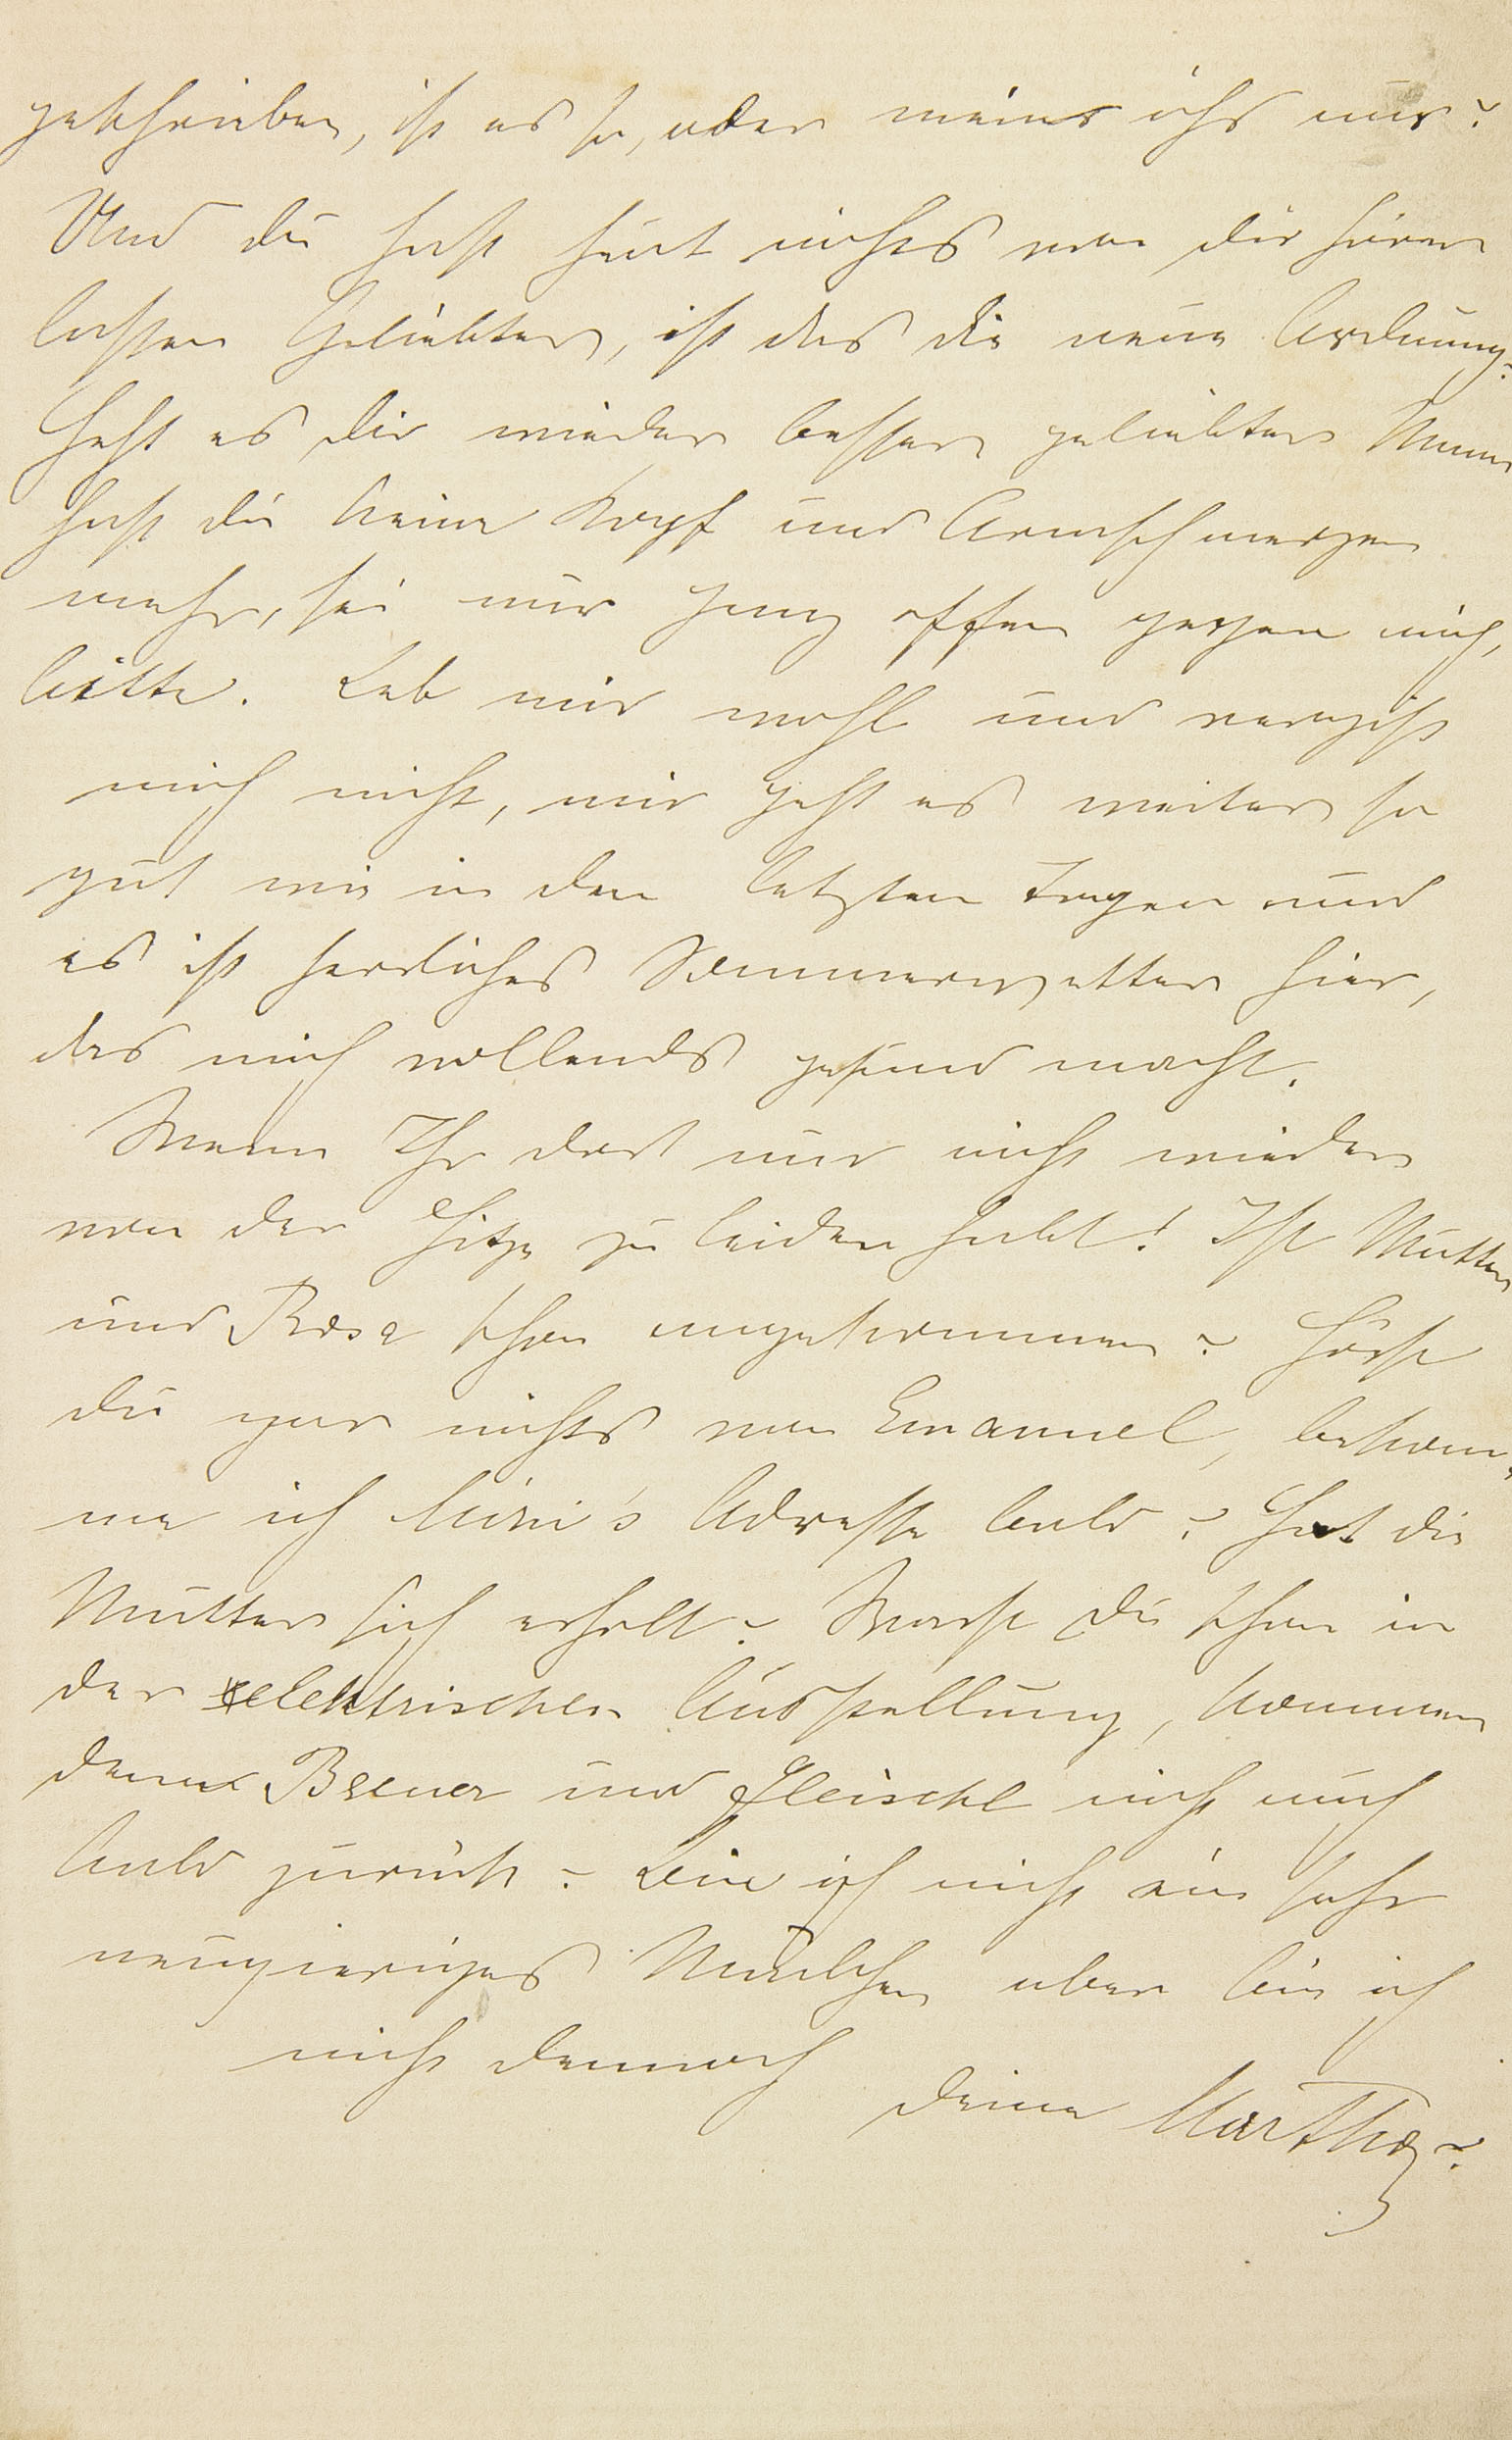 geschrieben, ist es so, oder meine ichs nur?
Und du hast heut nichts von dir hören
lassen Geliebter, ist das die neue Ordnung?
Geht es dir wieder besser geliebter Mann
hast du keine Kopf und Armschmerzen
mehr, sei nur ganz offen gegen mich,
bitte. Leb mir wohl und vergiß
mich nicht, mir geht es weiter so
gut wie in den letzten Tagen und
es ist herrliches Sommerwetter hier,
das mich vollends gesund macht.
Wenn Ihr dort nur nicht wieder
von der Hitze zu leiden habt! Ist Mutter
und Rosa schon angekommen? Hörst
du gar nichts von Emanuel, bekom¬
me ich Mini's Adresse bald? Hat die
Mutter sich erholt? Warst du schon in
der elektrischen Ausstellung, kommen
denn Breuer und Fleischl nicht auch
bald zurück? Bin ich nicht ein sehr
neugieriges Mädchen aber bin ich
nicht dennoch
deine Martha?